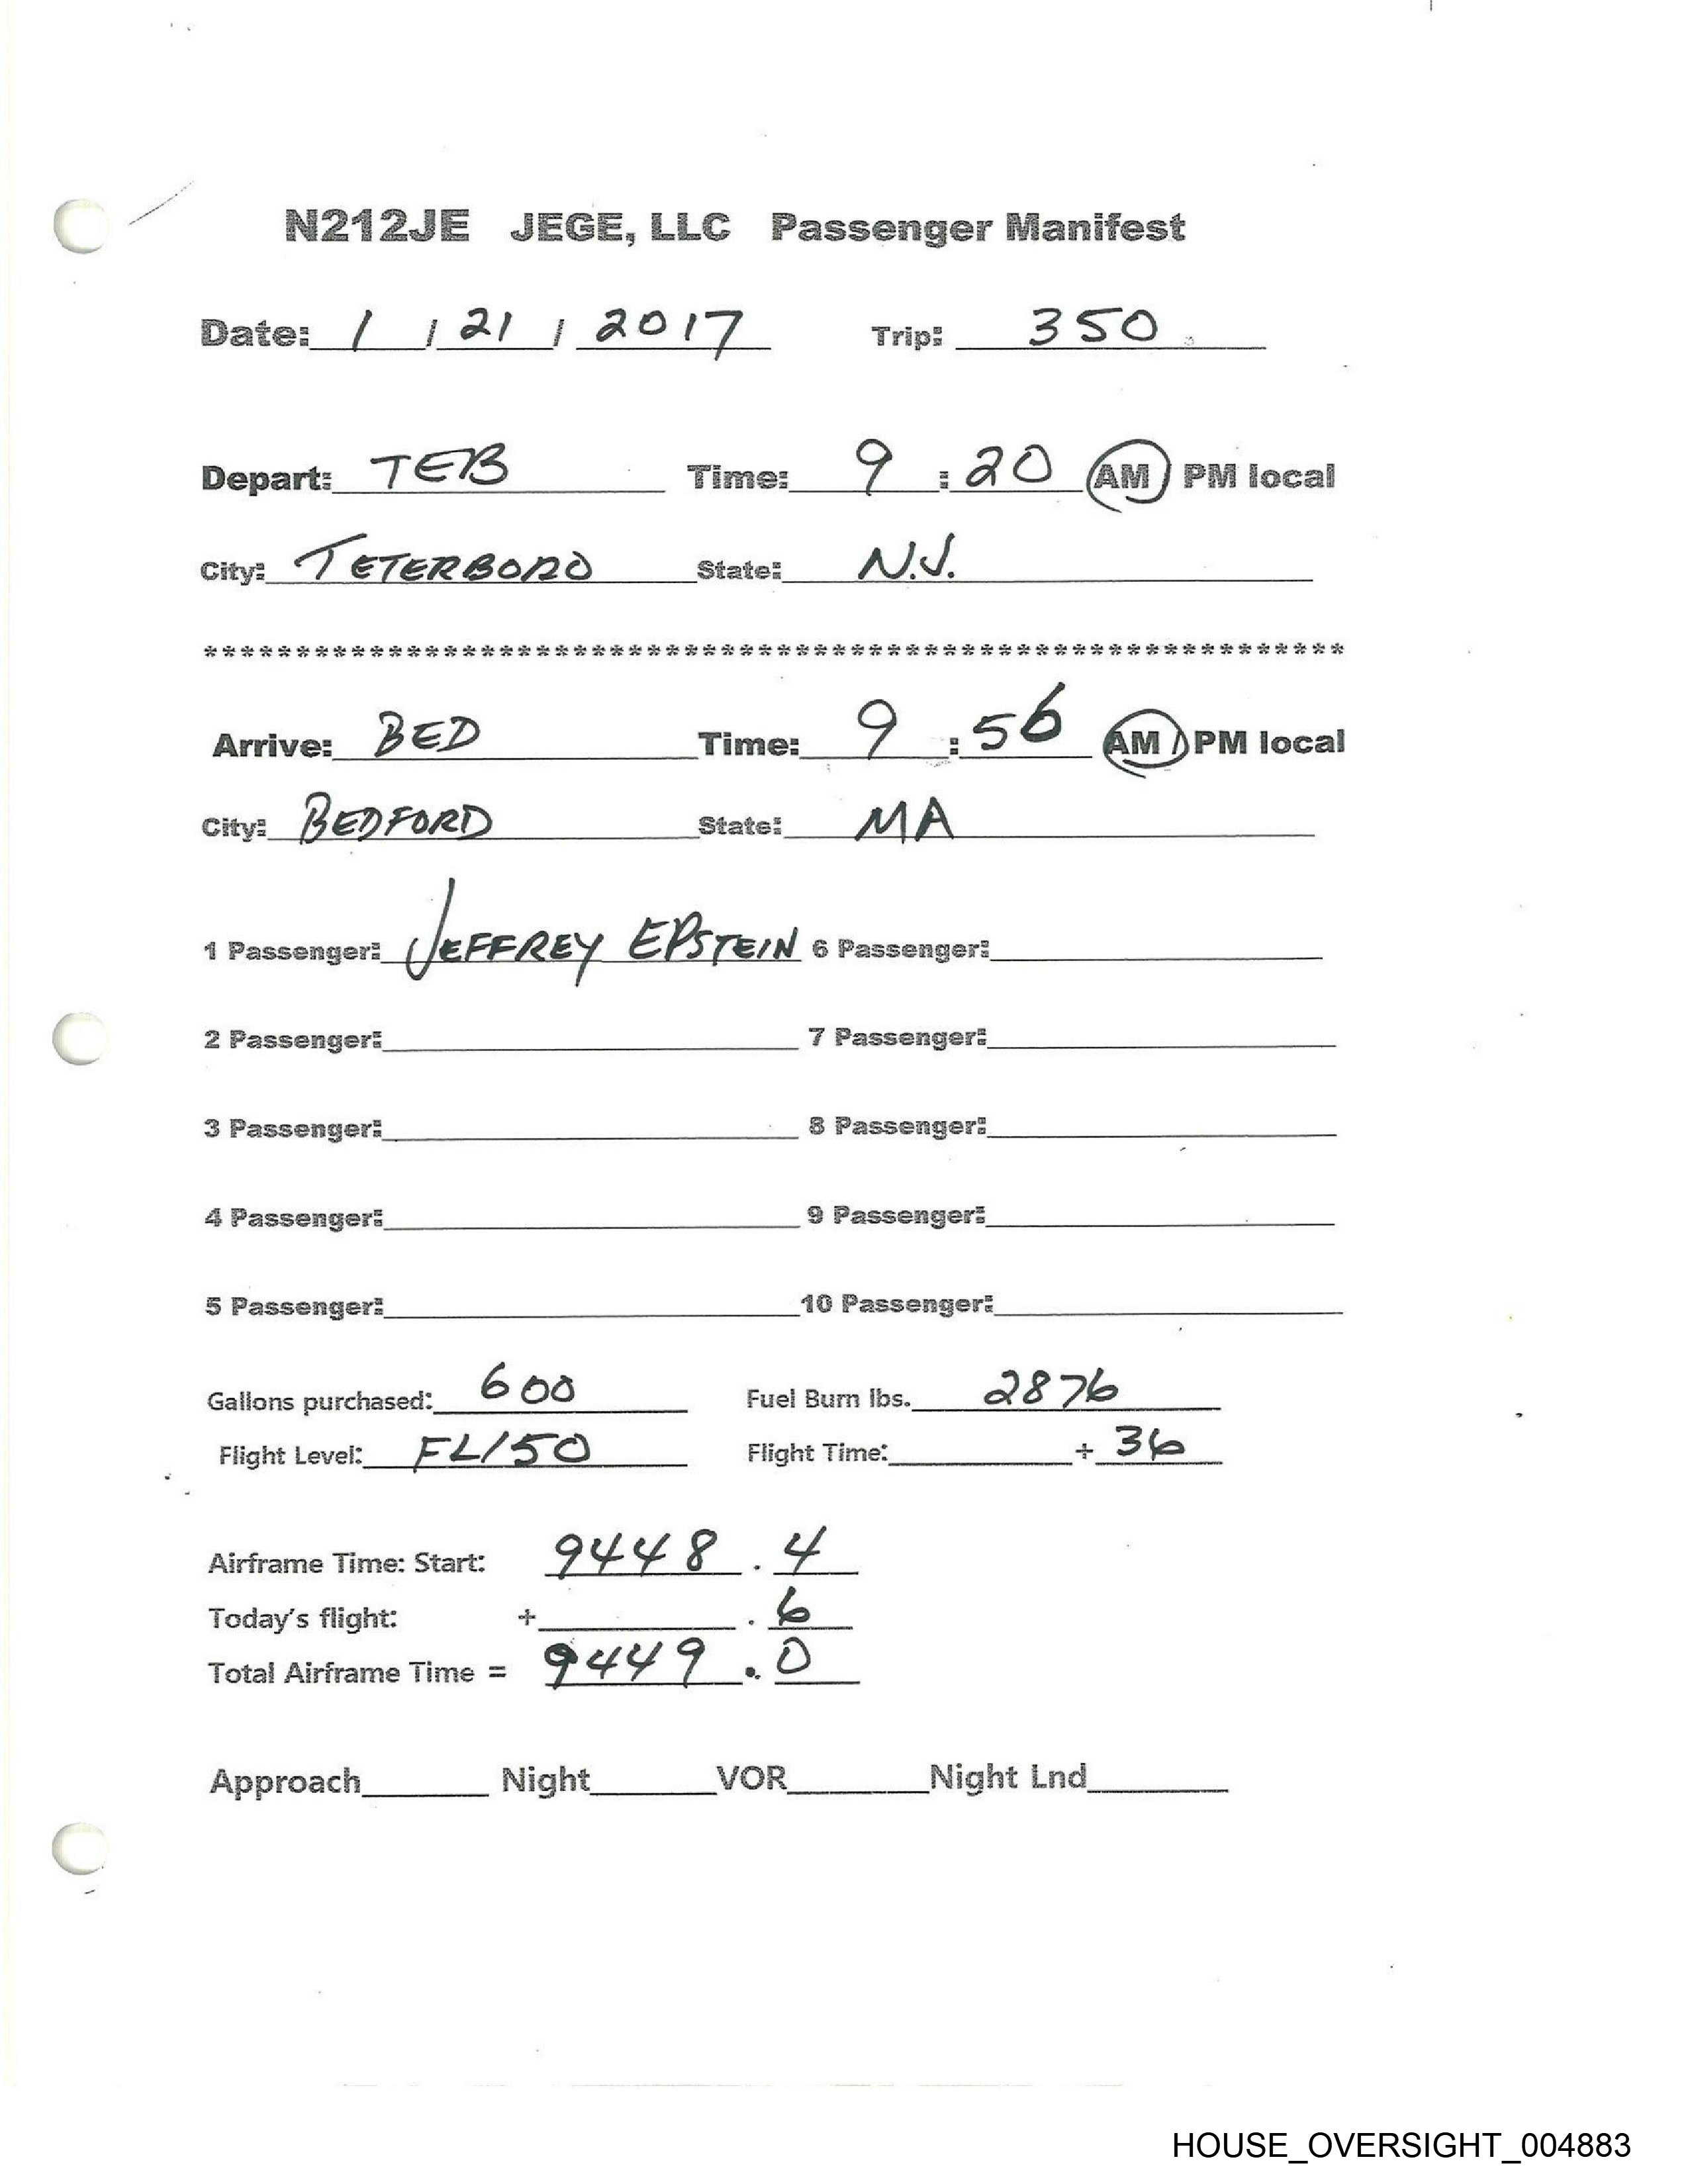 N212JE JEGE, LLC Passenger Manifest
Date: 1 / 21 / 2017 Trip: 350
Depart: TEB Time: 9 : 20 AM / PM local
City: TETERBORO State: N.J.
**************************************************************
Arrive: BED Time: 9 : 56 AM / PM local
City: BEDFORD State: MA
1 Passenger: JEFFREY EPSTEIN 6 Passenger:
2 Passenger: 7 Passenger:
3 Passenger: 8 Passenger:
4 Passenger: 9 Passenger:
5 Passenger: 10 Passenger:
Gallons purchased: 600 Fuel Burn lbs. 2876
Flight Level: FL150 Flight Time: + 36
Airframe Time: Start: 9448 . 4
Today's flight: + . 6
Total Airframe Time = 9449 . 0
Approach Night VOR Night Lnd
HOUSE_OVERSIGHT_004883